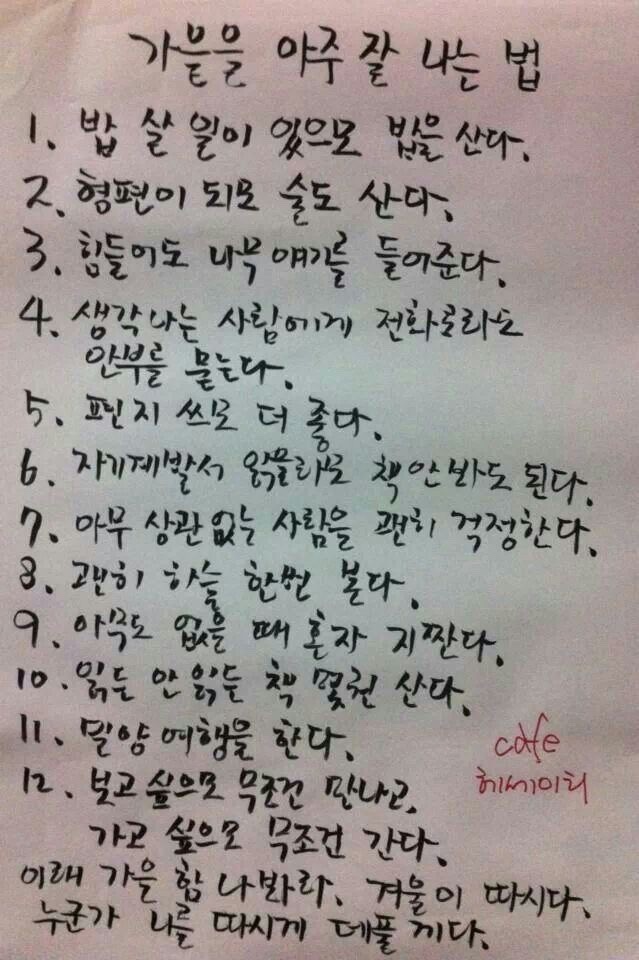 가을을 아주 잘 나는 법
1. 밥 살 일이 있으모 밥을 산다.
2. 형편이 되모 술도 산다.
3. 힘들어도 나무 얘기를 들어준다.
4. 생각나는 사람에게 전화로라도
안부를 묻는다.
5. 편지 쓰모 더 좋다.
6. 자기계발서 읽을라모 책 안 봐도 된다.
7. 아무 상관 없는 사람을 괜히 걱정한다.
8. 괜히 하늘 한번 본다.
9. 아무도 없을 때 혼자 지짠다.
10. 읽든 안 읽든 책 몇권 산다.
11. 밀양 여행을 한다.
12. 보고 싶으모 무조건 만나고,
가고 싶으모 무조건 간다.
이래 가을 함 나봐라. 겨울이 따시다.
누군가 나를 따시게 데풀 끼다.
cafe
헤세이티